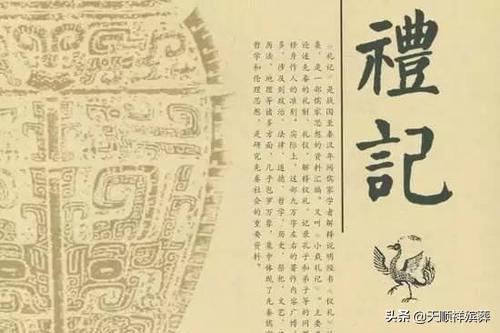 禮記
《礼记》是战国至秦汉年间儒家学者解释说明经书《仪礼》
集，是一部儒家思想的资料汇编。又叫《小戴礼记》。主要
论述先秦的礼制、礼仪，解释仪礼，记录孔子和弟子等的问
修身作人的准则。实际上，这部九万字左右的著作内容广博，
多，涉及到政治、法律、道德、哲学、历史、祭祀、文艺、
历法、地理等诸多方面，几乎包罗万象，集中体现了先秦儒
哲学和伦理思想，是研究先秦社会的重要资料。
头条 @天顺祥殡葬